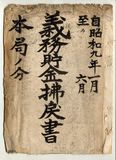 自昭和九年一月
至〃　六月
義務貯金拂戻書
本局ノ分